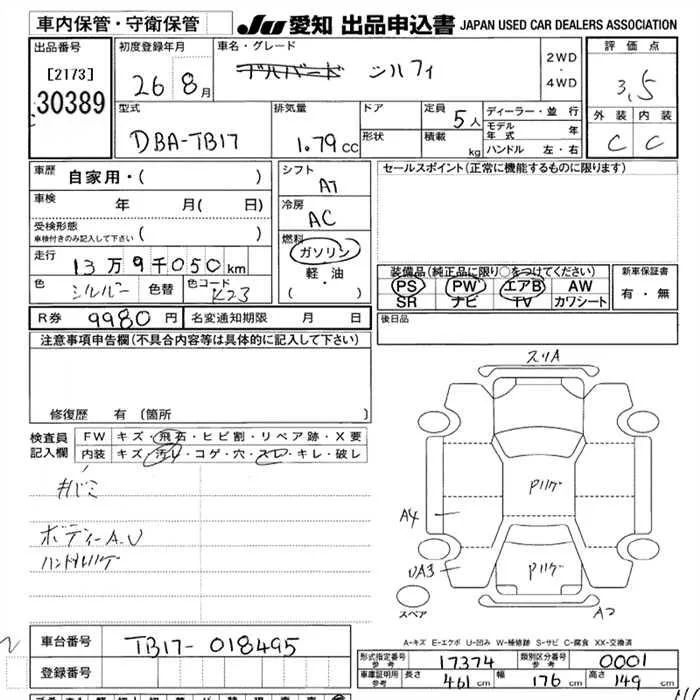 車内保管・守衛保管
JU 愛知 出品申込書 JAPAN USED CAR DEALERS ASSOCIATION
出品番号
[2173]
30389
初度登録年月
26 8月
車名・グレード
ブルバード シルフィ
2WD
・
4WD
評価点
3.5
外装 内装
C C
型式
DBA-TB17
排気量
1.79cc
ドア
形状
定員 5人
積載 kg
ディーラー・並行
モデル年式 年
ハンドル 左・右
車歴 自家用・( )
車検 年 月( 日)
受検形態
車検付きのみ記入して下さい ( )
走行 13万9千050km
色 シルバー 色替 色コード K23
シフト
AT
冷房
AC
燃料
ガソリン
軽・油
( ・ )
セールスポイント(正常に機能するものに限ります)
装備品(純正品に限り○をつけてください)
PS PW エアB AW
SR ナビ TV カワシート
新車保証書
有・無
R券 9980円 名変通知期限 月 日
後日品
注意事項申告欄(不具合内容等は具体的に記入して下さい)
修復歴 有(箇所 )
検査員
記入欄
FW キズ・飛石・ヒビ割・リペア跡・X要
内装 キズ・汚レ・コゲ・穴・スレ・キレ・破レ
ボディーA.U
スリA
Pリケ
A4
UA3
Pリケ
A2
スペア
A-キズ E-エクボ U-凹み W-補修跡 S-サビ C-腐食 XX-交換済
車台番号 TB17-018495
登録番号
形式指定番号
参考 17374
類別区分番号
参考 0001
車庫証明用
参考 長さ 461cm 幅 176cm 高さ 149cm